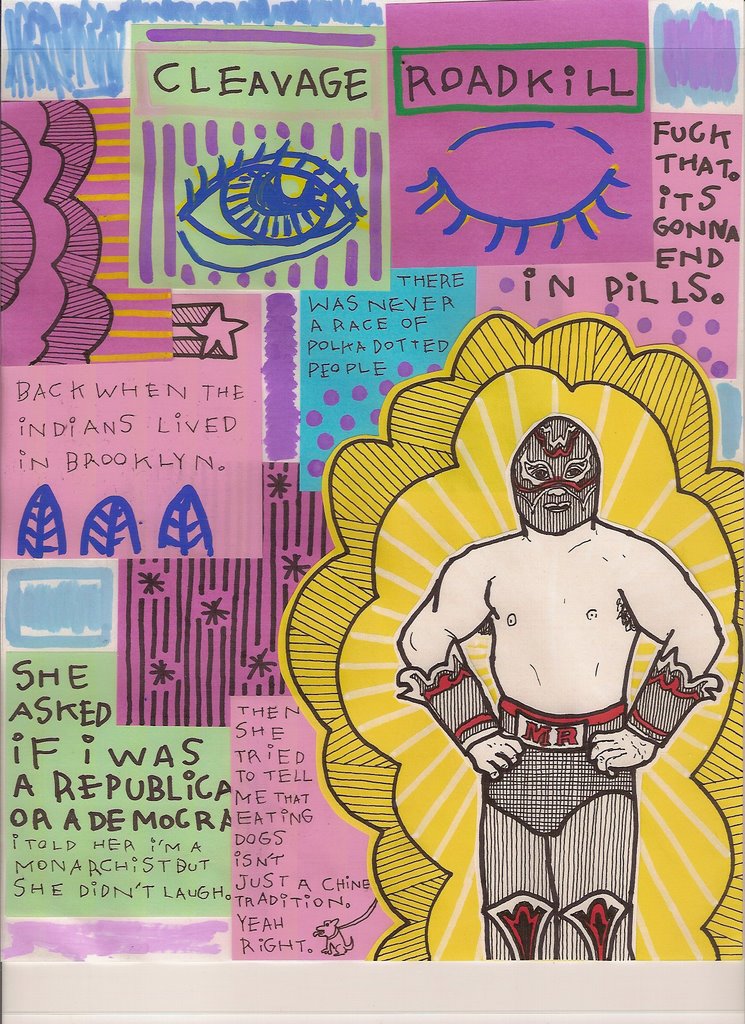 CLEAVAGE
ROADKiLL
FUCK
THAT.
iTS
GONNA
END
iN PiLLS.
THERE
WAS NEVER
A RACE OF
POLKA DOTTED
PEOPLE
BACK WHEN THE
iNDiANS LiVED
iN BROOKLYN.
SHE
ASKED
iF i WAS
A REPUBLICA
OR A DEMOCRA
i TOLD HER i'M A
MONARCHIST BUT
SHE DiDN'T LAUGH.
THEN
SHE
TRiED
TO TELL
ME THAT
EATiNG
DOGS
iSN'T
JUST A CHiNE
TRADiTiON.
YEAH
RiGHT.
MR